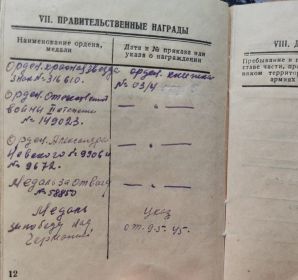 VII. ПРАВИТЕЛЬСТВЕННЫЕ НАГРАДЫ
Наименование ордена, медали
Дата и № приказа или указа о награждении
Орден Красная Звезда знак № 316610.
Орден. книжка № 
Орден. Отечественной войны II степени № 149023.
— " —
Орден. Александра Невского
№ 9672.
— " —
Медаль за отвагу № 58850
— " —
Медаль за победу над Германией
Указ от. 9.5.45.
12
VIII.
Пребывание в
ставе части, пр
вяком террито
армиях